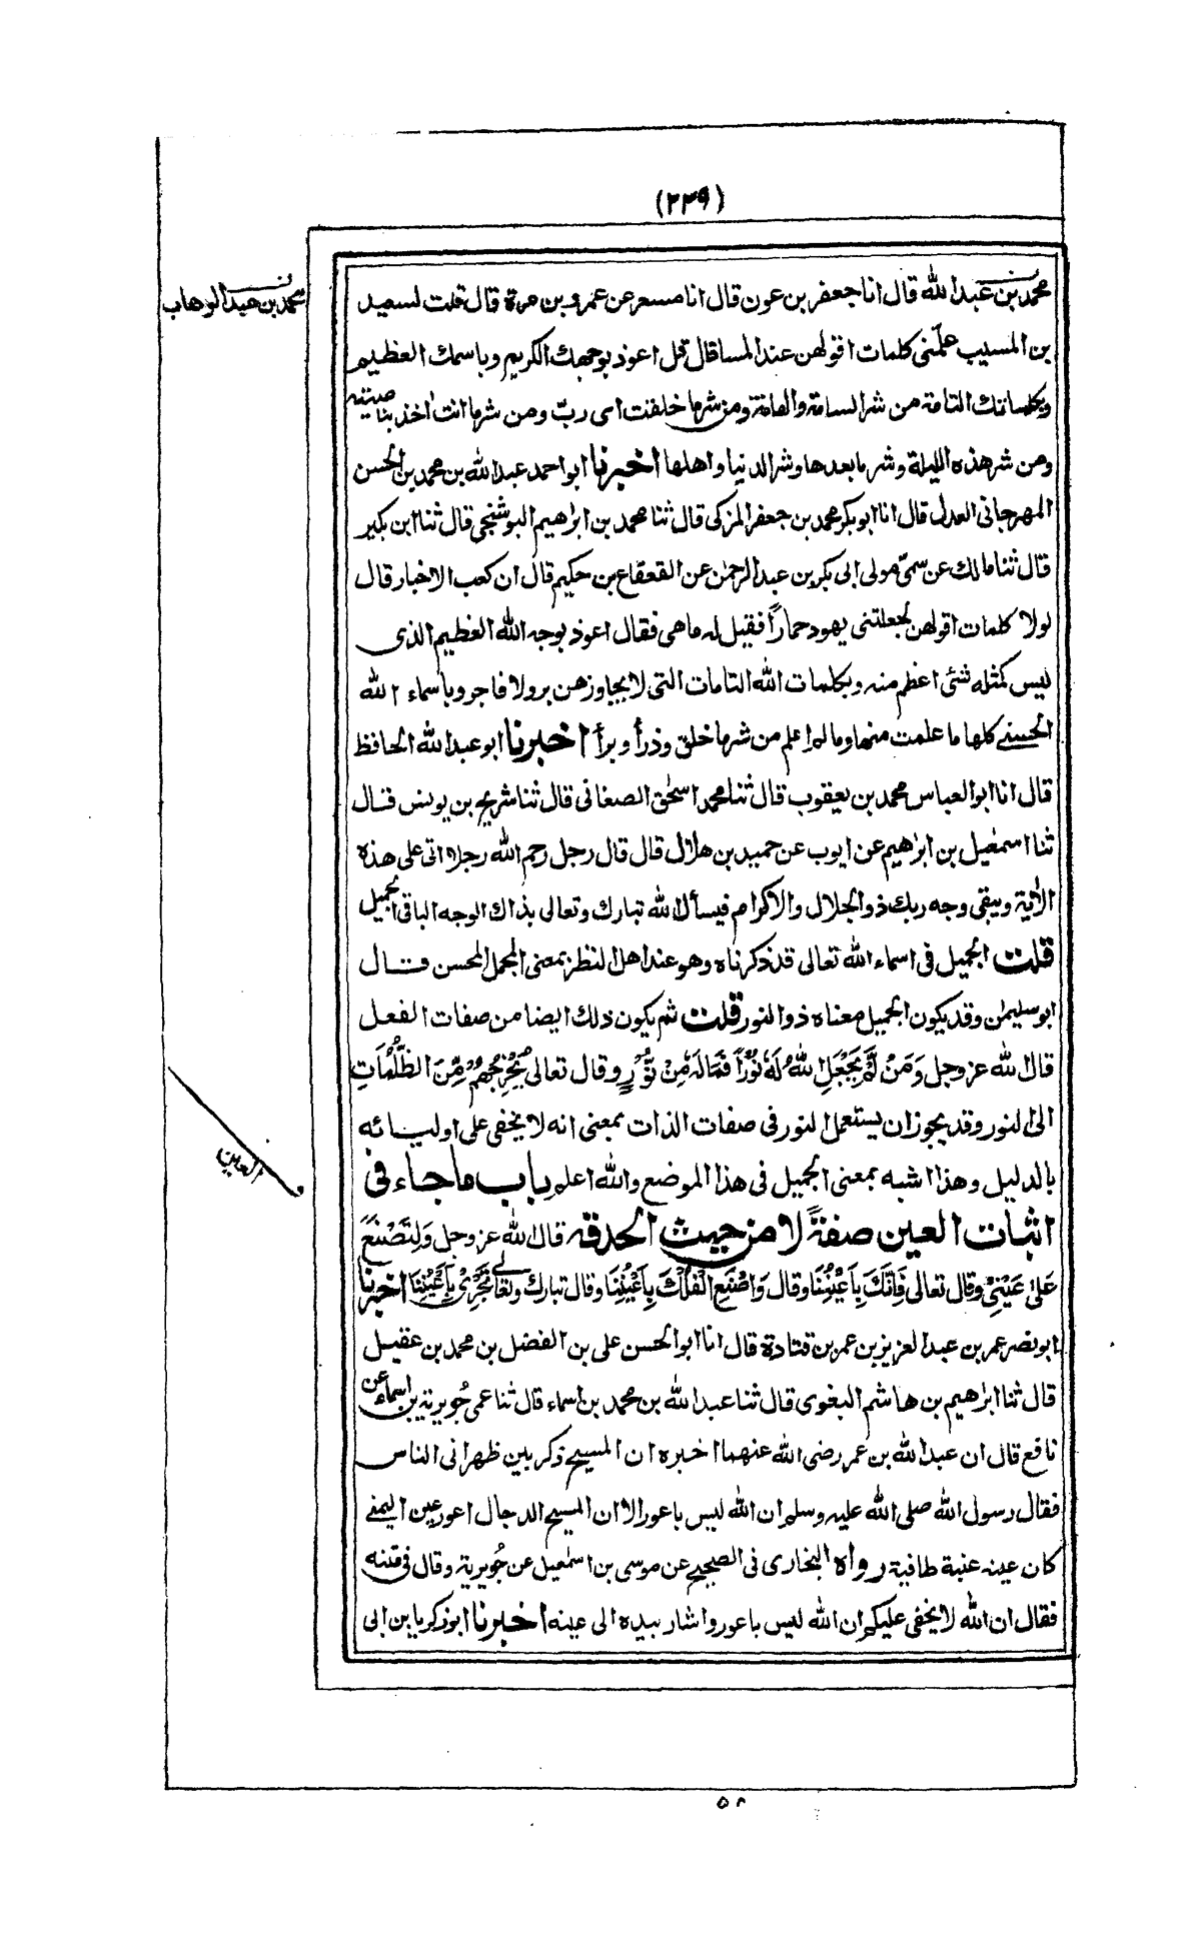 (٢٢٩)
محمد بن عبد الله قال انا جعفر بن عون قال انا مسعر عن عمرو بن مرة قال قلت لسعيد
محمد بن عبد الوهاب
بن المسيب علّمنى كلمات اقولهن عند المسا قال قل اعوذ بوجهك الكريم وباسمك العظيم
وبكلماتك التامة من شر السامة والعامة ومن شر ما خلقت اى ربّ ومن شر ما انت اٰخذ بناصيته
ومن شر هذه الليلة وشر ما بعدها وشر الدنيا واهلها اخبرنا ابو احمد عبد الله بن محمد بن الحسن
المهرجانى العدل قال انا ابو بكر محمد بن جعفر المزكى قال ثنا محمد بن ابرٰهيم البوشنجى قال ثنا ابن بكير
قال ثنا مالك عن سمىّ مولى ابى بكر بن عبد الرحمٰن عن القعقاع بن حكيم قال ان كعب الاحبار قال
لولا كلمات اقولهن لجعلتنى يهود حماراً فقيل له ما هى فقال اعوذ بوجه الله العظيم الذى
ليس كمثله شئى اعظم منه وبكلمات الله التامات التى لا يجاوزهن بر ولا فاجر وباسماء الله
الحسنے كلها ما علمت منها وما لم اعلم من شر ما خلق وذرأ وبرأ اخبرنا ابو عبد الله الحافظ
قال انا ابو العباس محمد بن يعقوب قال ثنا محمد اسحٰق الصغانى قال ثنا شريح بن يونس قال
ثنا اسمٰعيل بن ابرٰهيم عن ايوب عن حميد بن هلال قال قال رجل رحم الله رجلا اتى على هذه
الاٰية ويبقى وجه ربك ذو الجلال والاكرام فيسأل الله تبارك وتعالى بذاك الوجه الباقى الجميل
قلت الجميل فى اسماء الله تعالى قد ذكرناه وهو عند اهل النظر بمعنى المجمل المحسن قال
ابو سليمٰن وقد يكون الجميل معناه ذو النور قلت ثم يكون ذلك ايضا من صفات الفعل
قال الله عز وجل وَمَنْ لَّمْ يَجْعَلِ اللهُ لَهٗ نُوْرًا فَمَا لَهٗ مِنْ نُّوْرٍ وقال تعالى يُخْرِجُهُمْ مِّنَ الظُّلُمٰتِ
الى النور وقد يجوز ان يستعمل النور فى صفات الذات بمعنى انه لا يخفى على اوليائه
بالدليل وهذا اشبه بمعنى الجميل فى هذا الموضع والله اعلم باب ما جاء فى
العين
اثبات العين صفةً لا من حيث الحدقه قال الله عز وجل وَلِتُصْنَعَ
عَلىٰ عَيْنِىْ وقال تعالى فَاِنَّكَ بِاَعْيُنِنَا وقال وَاصْنَعِ الْفُلْكَ بِاَعْيُنِنَا وقال تبارك وتعالى تَجْرِىْ بِاَعْيُنِنَا اخبرنا
ابو نصر عمر بن عبد العزيز بن عمر بن قتادة قال انا ابو الحسن على بن الفضل بن محمد بن عقيل
قال ثنا ابرٰهيم بن هاشم البغوى قال ثنا عبد الله بن محمد بن اسماء قال ثنا عمى جُويرية بن اسماء عن
نافع قال ان عبد الله بن عمر رضى الله عنهما اخبره ان المسيح ذكر بين ظهرانى الناس
فقال رسول الله صلى الله عليه وسلم ان الله ليس باعور الا ان المسيح الدجال اعور عين اليمنے
كان عينه عنبة طافية رواه البخارى فى الصحيح عن موسى بن اسمٰعيل عن جُويرية وقال فى متنه
فقال ان الله لا يخفى عليكم ان الله ليس باعور واشار بيده الى عينه اخبرنا ابو زكريا بن ابى
٥٨